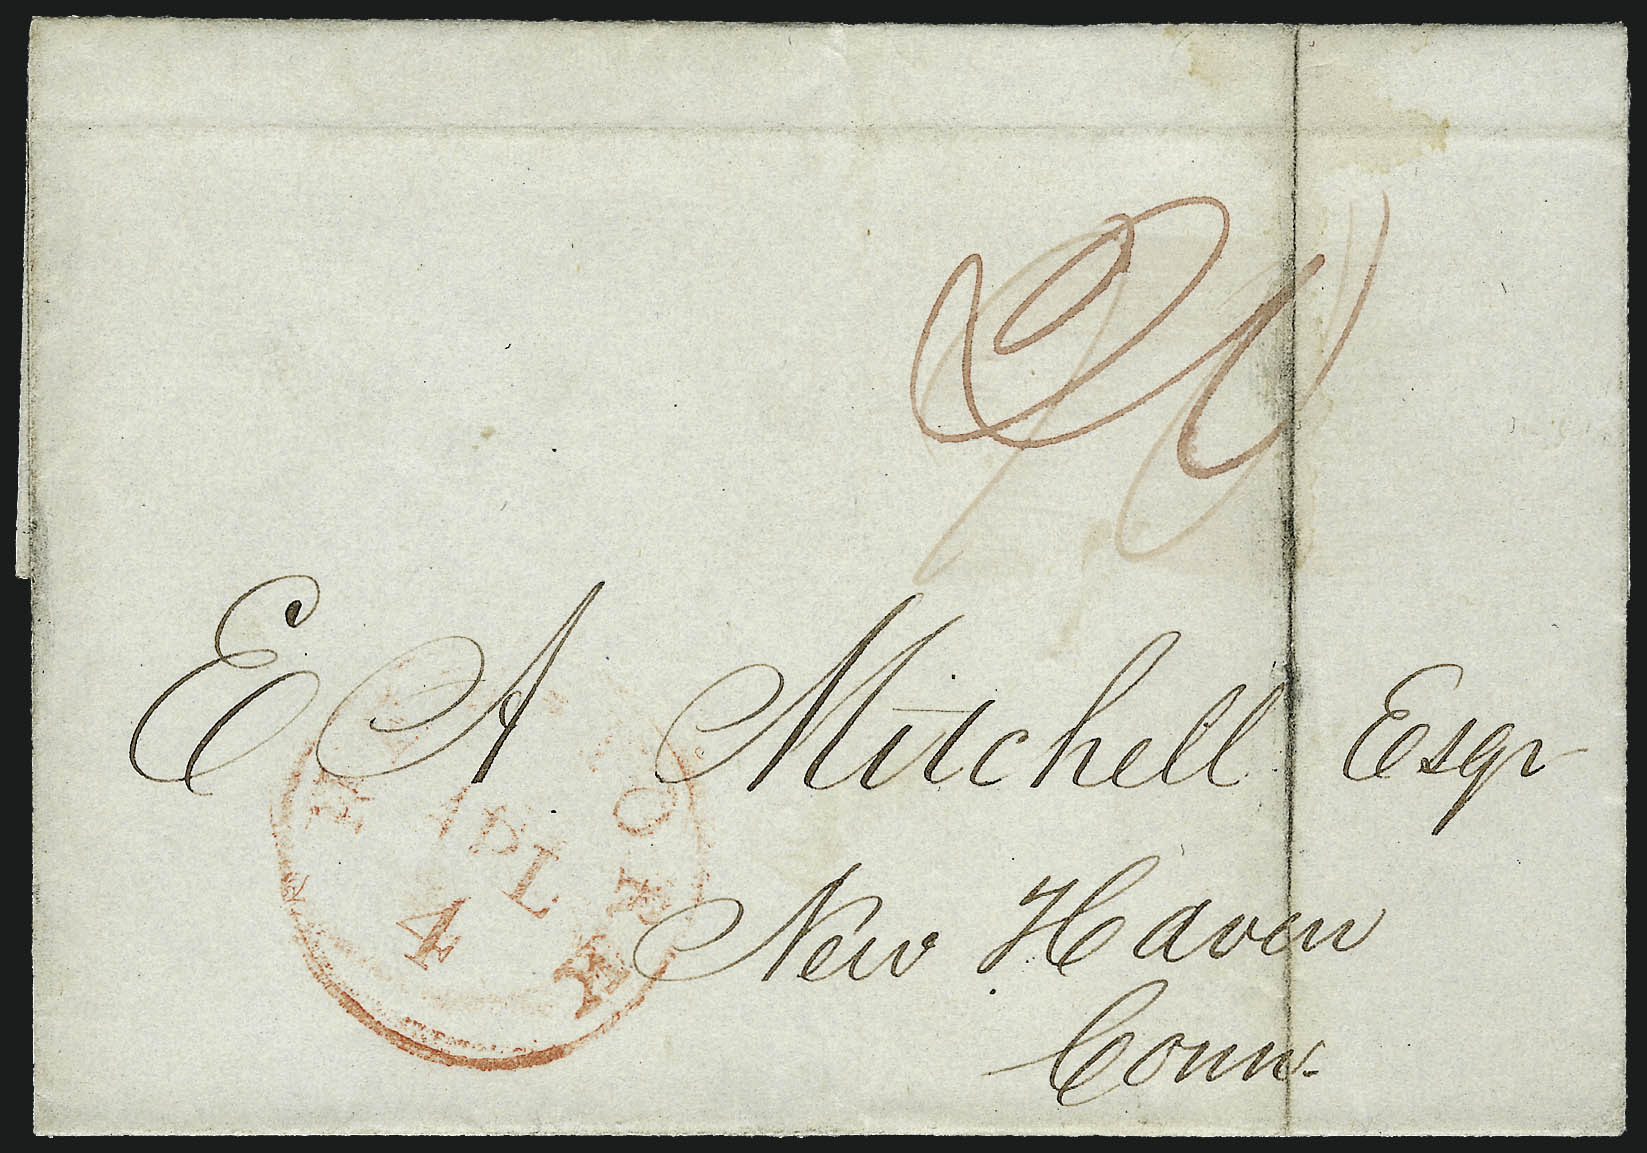 20
E A Mitchell Esqr
New Haven
Conn.
NEW YORK
APL
4